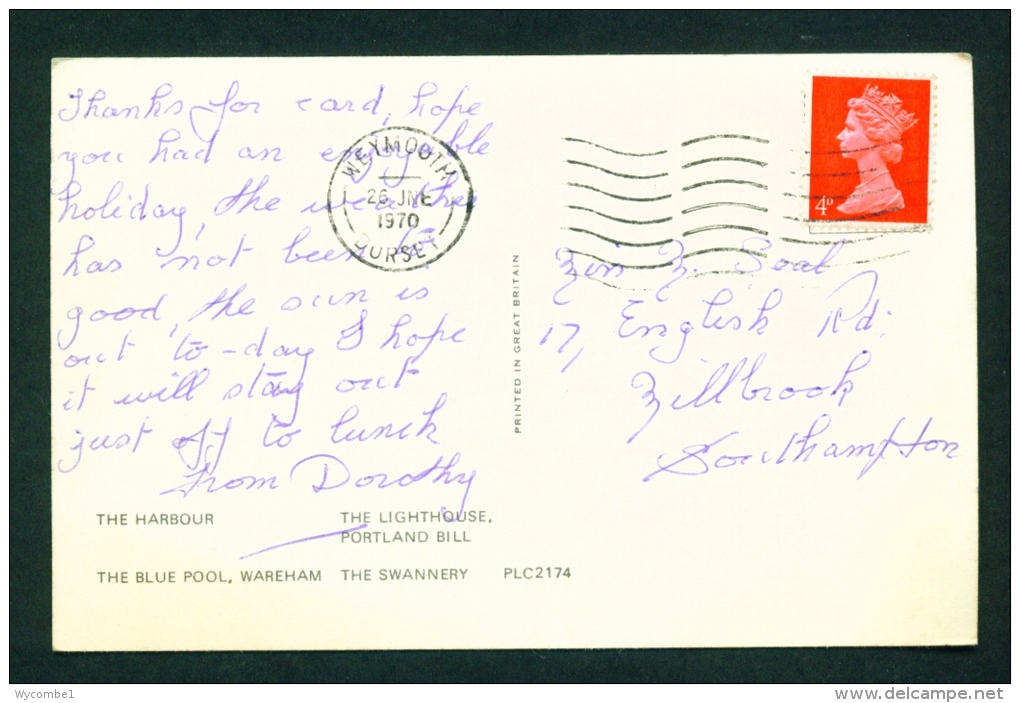 Thanks for card, hope
you had an enjoyable
holiday, the weather
has not been
good, the sun is
out to-day I hope
it will stay out
just off to lunch
from Dorothy
WEYMOUTH
26 JNE
1970
DORSET
4D
Miss M. Seal
17, English Rd:
Millbrook
Southampton
PRINTED IN GREAT BRITAIN
THE HARBOUR
THE LIGHTHOUSE,
PORTLAND BILL
THE BLUE POOL, WAREHAM THE SWANNERY PLC2174
Wycombe1
www.delcampe.net